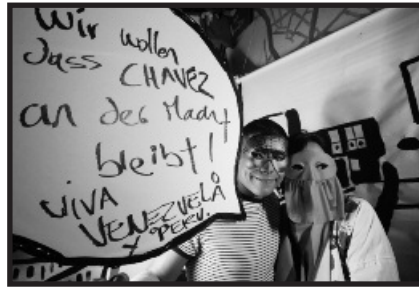 Wir wollen
dass CHAVEZ
an der Macht
bleibt!
VIVA
VENEZUELA
Y PERU.